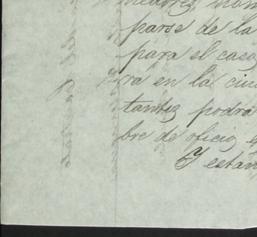 parse de la
para el caso
ra en la ciu
tantes podrá
bre de oficio
Y están